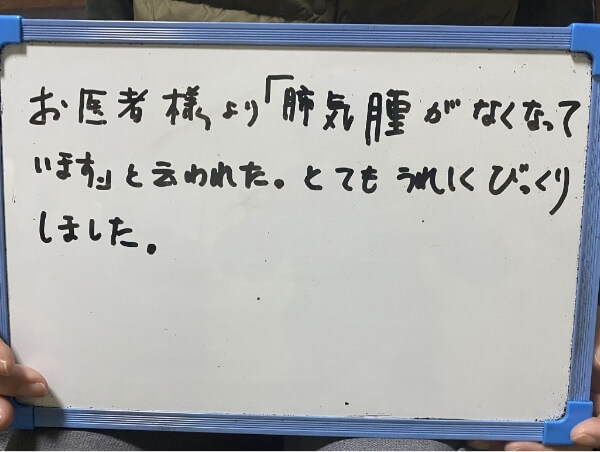 お医者様より「肺気腫がなくなって
います。」と云われた。とてもうれしくびっくり
しました。